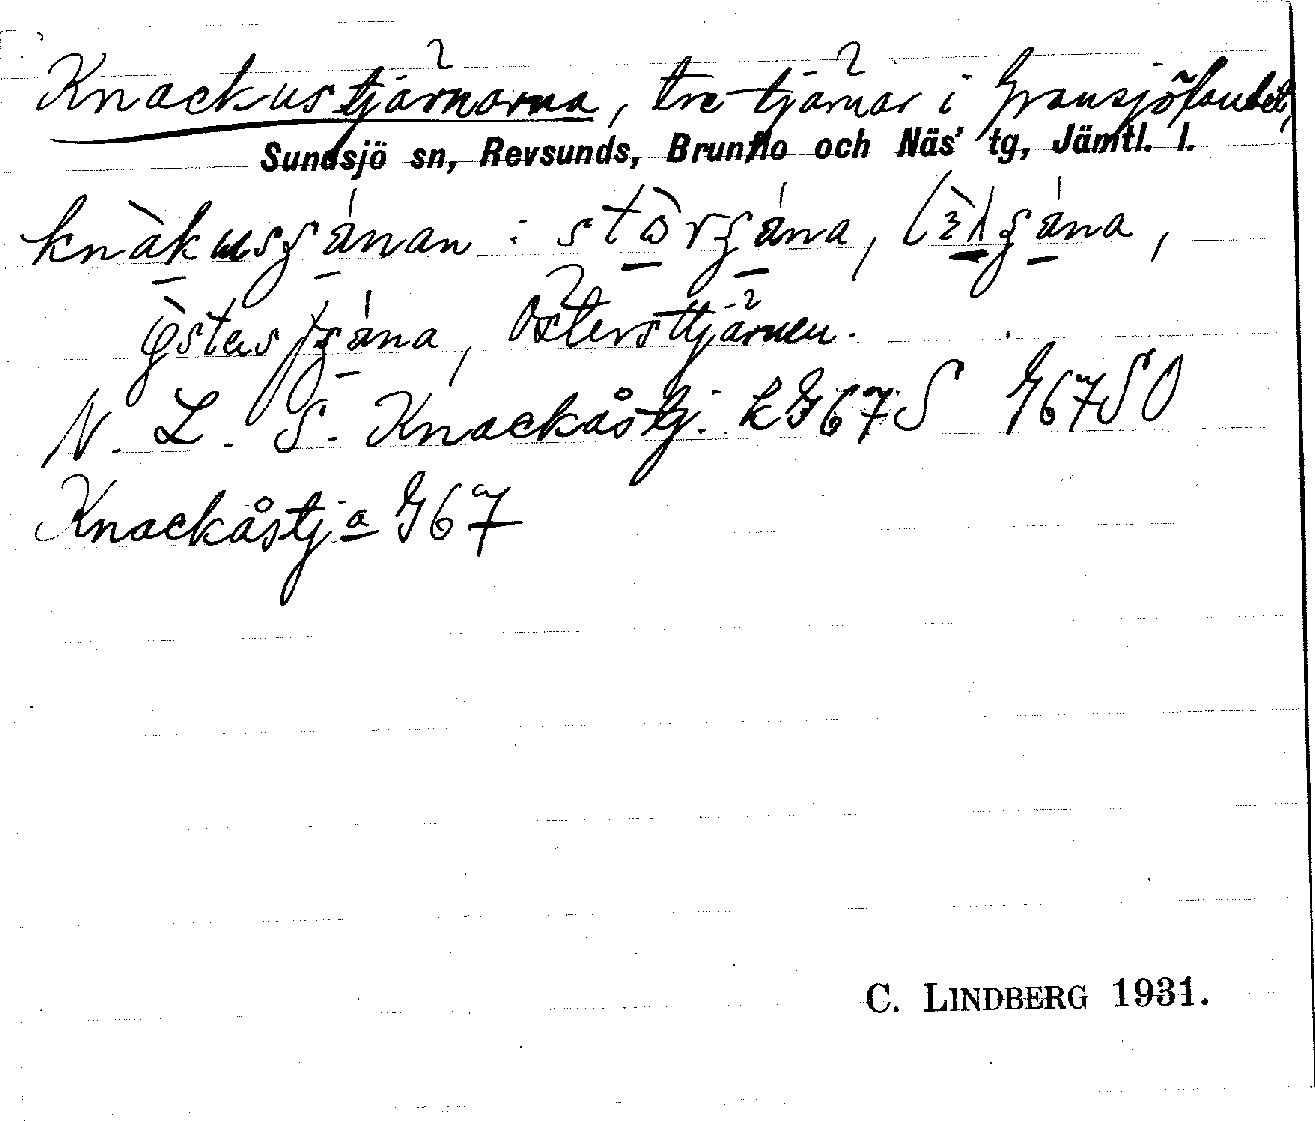 Knackustjärnarna, tre tjärnar i Gransjölandet,
Sundsjö sn, Revsunds, Brunflo och Näs' tg, Jämtl. l.
knàkusʂánan : stòrʂána,
Österstjärnen.
N. L. S. Knackåstj. k G67S G67SO
Knackåstj a G67
C. LINDBERG 1931.